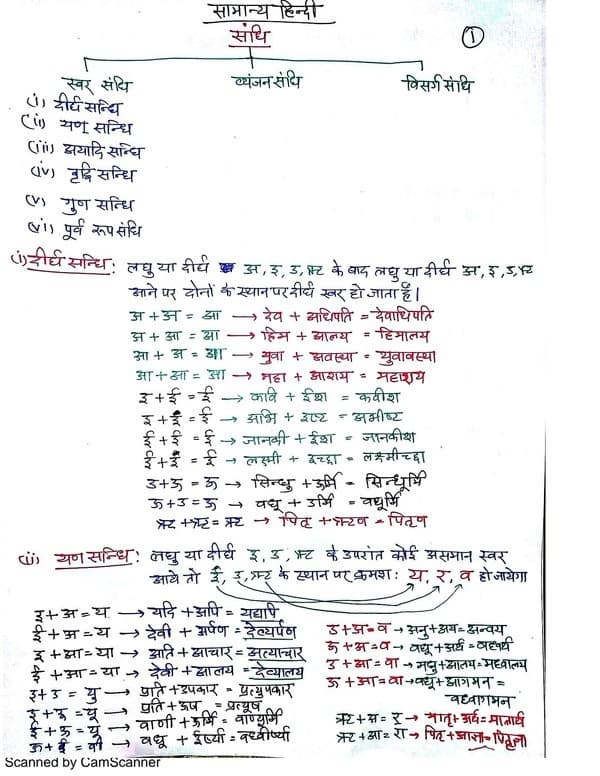 सामान्य हिन्दी
संधि
①
स्वर संधि
व्यंजन संधि
विसर्ग संधि
(i) दीर्घ सन्धि
(ii) यण सन्धि
(iii) अयादि सन्धि
(iv) वृद्धि सन्धि
(v) गुण सन्धि
(vi) पूर्व रूप संधि
(i) दीर्घ सन्धि: लघु या दीर्घ अ, इ, उ, ऋ के बाद लघु या दीर्घ अ, इ, उ, ऋ
आने पर दोनों के स्थान पर दीर्घ स्वर हो जाता है।
अ + अ = आ → देव + अधिपति = देवाधिपति
अ + आ = आ → हिम + आलय = हिमालय
आ + अ = आ → युवा + अवस्था = युवावस्था
आ + आ = आ → महा + आशय = महाशय
इ + ई = ई → कवि + ईश = कवीश
इ + इ = ई → अभि + इष्ट = अभीष्ट
ई + ई = ई → जानकी + ईश = जानकीश
ई + इ = ई → लक्ष्मी + इच्छा = लक्ष्मीच्छा
उ + ऊ = ऊ → सिन्धु + ऊर्मि = सिन्धूर्मि
ऊ + उ = ऊ → वधू + उर्मि = वधूर्मि
ऋ + ऋ = ऋ → पितृ + ऋण = पितृण
(ii) यण सन्धि: लघु या दीर्घ इ, उ, ऋ के उपरांत कोई असमान स्वर
आये तो ई, उ, ऋ के स्थान पर क्रमश: य, र, व हो जायेगा
इ + अ = य → यदि + अपि = यद्यपि
ई + अ = य → देवी + अर्पण = देव्यर्पण
इ + आ = या → अति + आचार = अत्याचार
ई + आ = या → देवी + आलय = देव्यालय
इ + उ = यु → प्रति + उपकार = प्रत्युपकार
इ + ऊ = यू → प्रति + ऊष = प्रत्यूष
ई + ऊ = यू → वाणी + ऊर्मि = वाण्यूर्मि
ऊ + ई = वी → वधू + ईर्ष्या = वध्वीर्ष्या
उ + अ = व → अनु + अय = अन्वय
ऊ + अ = व → वधू + अर्थ = वध्वर्थ
उ + आ = वा → मधु + आलय = मध्वालय
ऊ + आ = वा → वधू + आगमन =
वध्वागमन
ऋ + अ = र → मातृ + अर्थ = मात्रार्थ
ऋ + आ = रा → पितृ + आज्ञा = पित्राज्ञा
Scanned by CamScanner